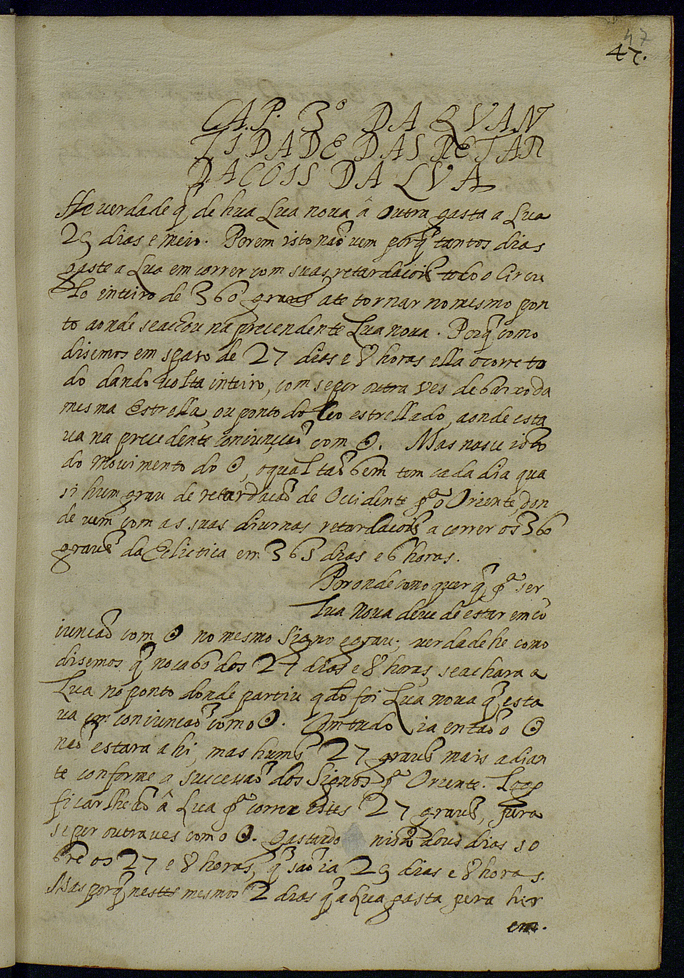 47
47.
CAP. 3º DA QVAN
TIDADE DAS RETAR
DACOIS DA LVA
He verdade q̃ de hua Lua noua â outra gasta a Lua
29 dias e meio. Porem isto naõ vem porq̃ tantos dias
gaste a Lua em correr com suas retardacois todo o Circu
lo inteiro de 360 graus ate tornar no mesmo pon
to aonde se achou na precendente Lua noua. Porq̃ como
disemos em spaso de 27 dias e 8 horas ella o corre to
do dando uolta inteiro, com se por outra ves debaixo da
mesma Estrella, ou ponto do Ceo estrellado, aonde esta
ua na precedente coniuncaõ com ☉. Mas nasce isto
do Movimento do ☉, o qual taõ bem tem cada dia qua
si hum grau de retardacaõ de Occidente pª o Oriente, don
de vem com as suas diurnas retardacois a correr os 360
graus da Eclictica em 365 dias e 6 horas.
Por onde como quer q̃ pª ser
Lua noua deue de estar em cõ
iuncaõ com ☉ no mesmo Signo e grau; verdade he como
disemos q̃ no cabo dos 27 dias e 8 horas, se achara a
Lua no ponto donde partiu qdo foi Lua noua q̃ esta
ua em coniuncaõ com o ☉. Comtudo ia entaõ o ☉
naõ estara ahi, mas huns 27 graus mais adian
te conforme a successaõ dos Signos pª Oriente. Logo
ficarlheaõ â Lua pª correr estes 27 graus, pera
se por outra ves com o ☉. Gastando nisto dous dias so
bre os 27 e 8 horas, q̃ saõ ia 29 dias e 8 horas.
Mas porq̃ nestes mesmos 2 dias q̃ a Lua gasta pera hir
em.